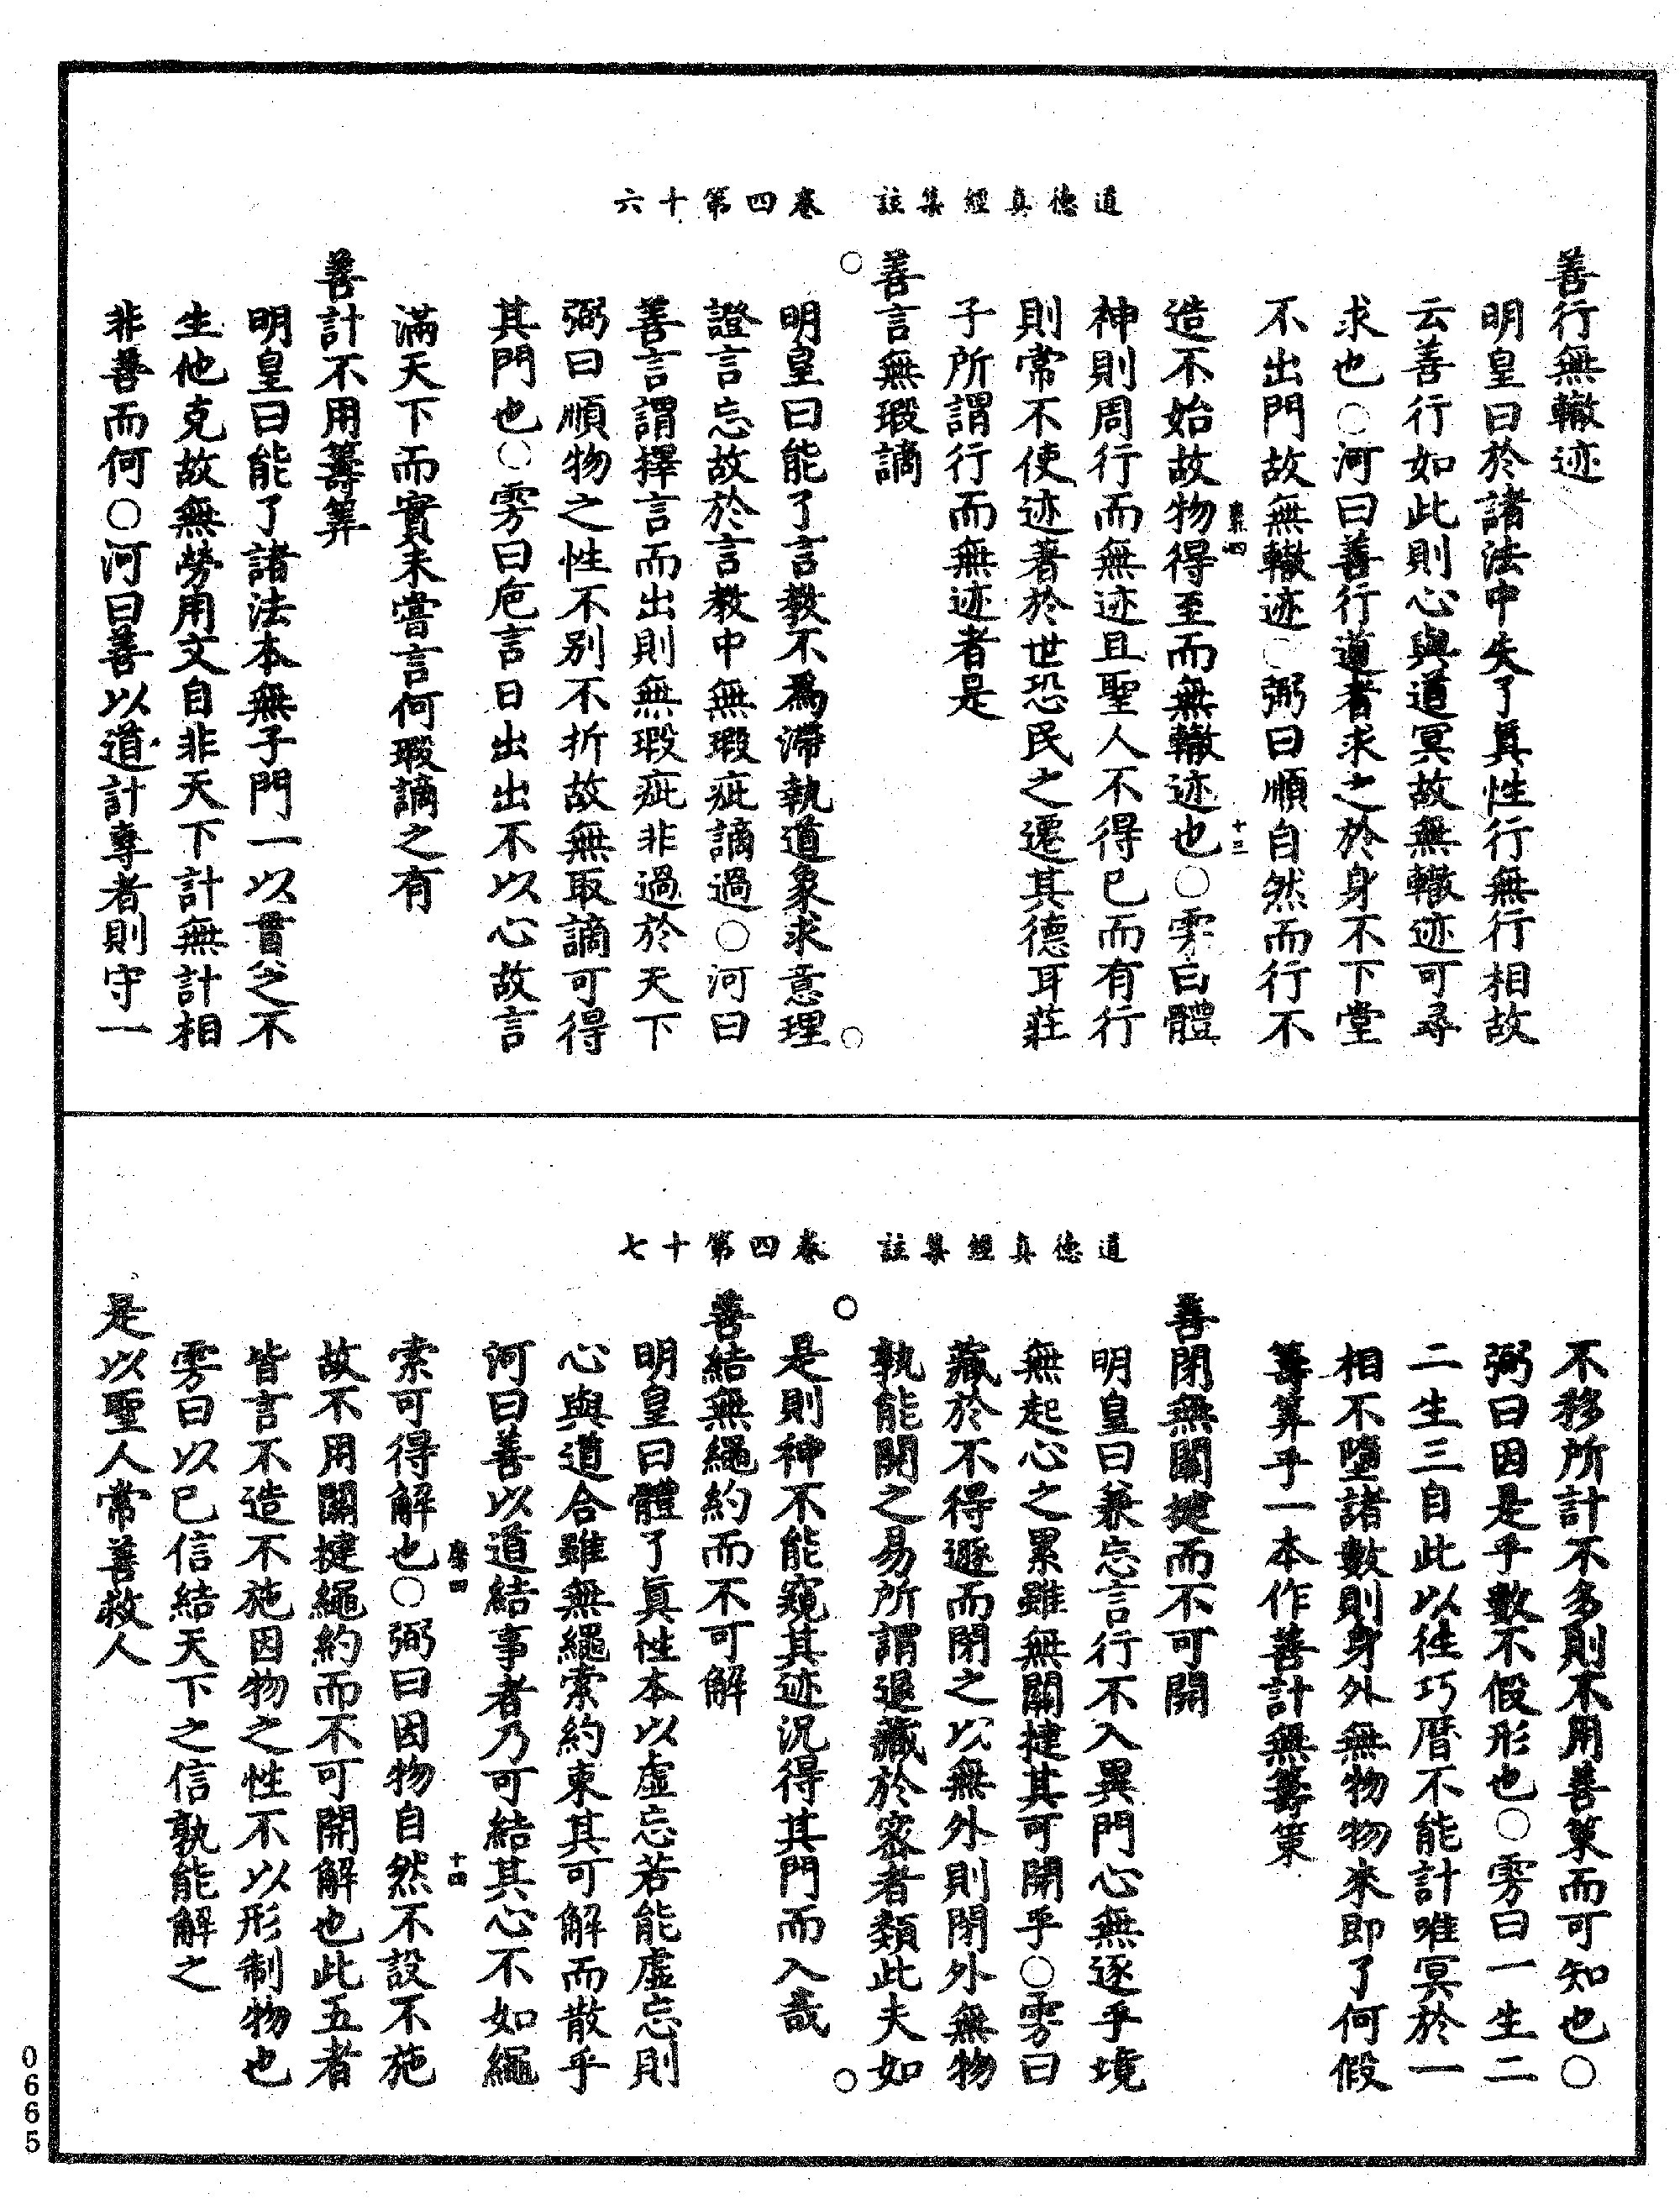 道德真經集註　卷四第十六
善行無轍迹
明皇曰於諸法中失了真性行無行相故
云善行如此則心與道冥故無轍迹可尋
求也○河曰善行道者求之於身不下堂
不出門故無轍迹○弼曰順自然而行不
造不始故物得至而無轍迹也○雱曰體
十三
神則周行而無迹且聖人不得已而有行
則常不使迹著於世恐民之遷其德耳莊
子所謂行而無迹者是
善言無瑕謫
○　○
明皇曰能了言教不為滯執道象求意理
證言忘故於言教中無瑕疵謫過○河曰
善言謂擇言而出則無瑕疵非過於天下
弼曰順物之性不别不折故無取謫可得
其門也○雱曰巵言日出出不以心故言
滿天下而實未嘗言何瑕謫之有
善計不用籌筭
明皇曰能了諸法本無子門一以貫之不
生他克故無勞用文自非天下計無計相
非善而何○河曰善以道計專者則守一
道德真經集註　卷四第十七
不移所計不多則不用善策而可知也○
弼曰因是乎數不假形也○雱曰一生二
二生三自此以往巧曆不能計唯冥於一
相不墮諸數則身外無物物來即了何假
籌筭乎一本作善計無籌策
善閉無關揵而不可開
明皇曰兼忘言行不入異門心無逐乎境
無起心之累雖無關揵其可開乎○雱曰
藏於不得遯而閉之以無外則閉外無物
孰能開之易所謂退藏於密者類此夫如
○　○
是則神不能窺其迹況得其門而入哉
善結無繩約而不可解
明皇曰體了真性本以虛忘若能虛忘則
心與道合雖無繩索約束其可解而散乎
河曰善以道結事者乃可結其心不如繩
十四
索可得解也○弼曰因物自然不設不施
故不用關揵繩約而不可開解也此五者
皆言不造不施因物之性不以形制物也
雱曰以己信結天下之信孰能解之
是以聖人常善救人
0665